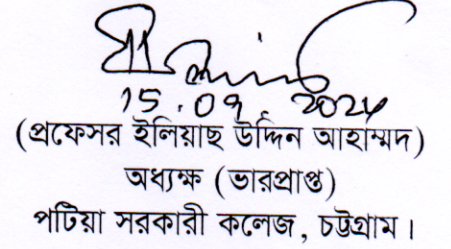 15.09.2024
(প্রফেসর ইলিয়াছ উদ্দিন আহাম্মদ)
অধ্যক্ষ (ভারপ্রাপ্ত)
পটিয়া সরকারী কলেজ, চট্টগ্রাম।